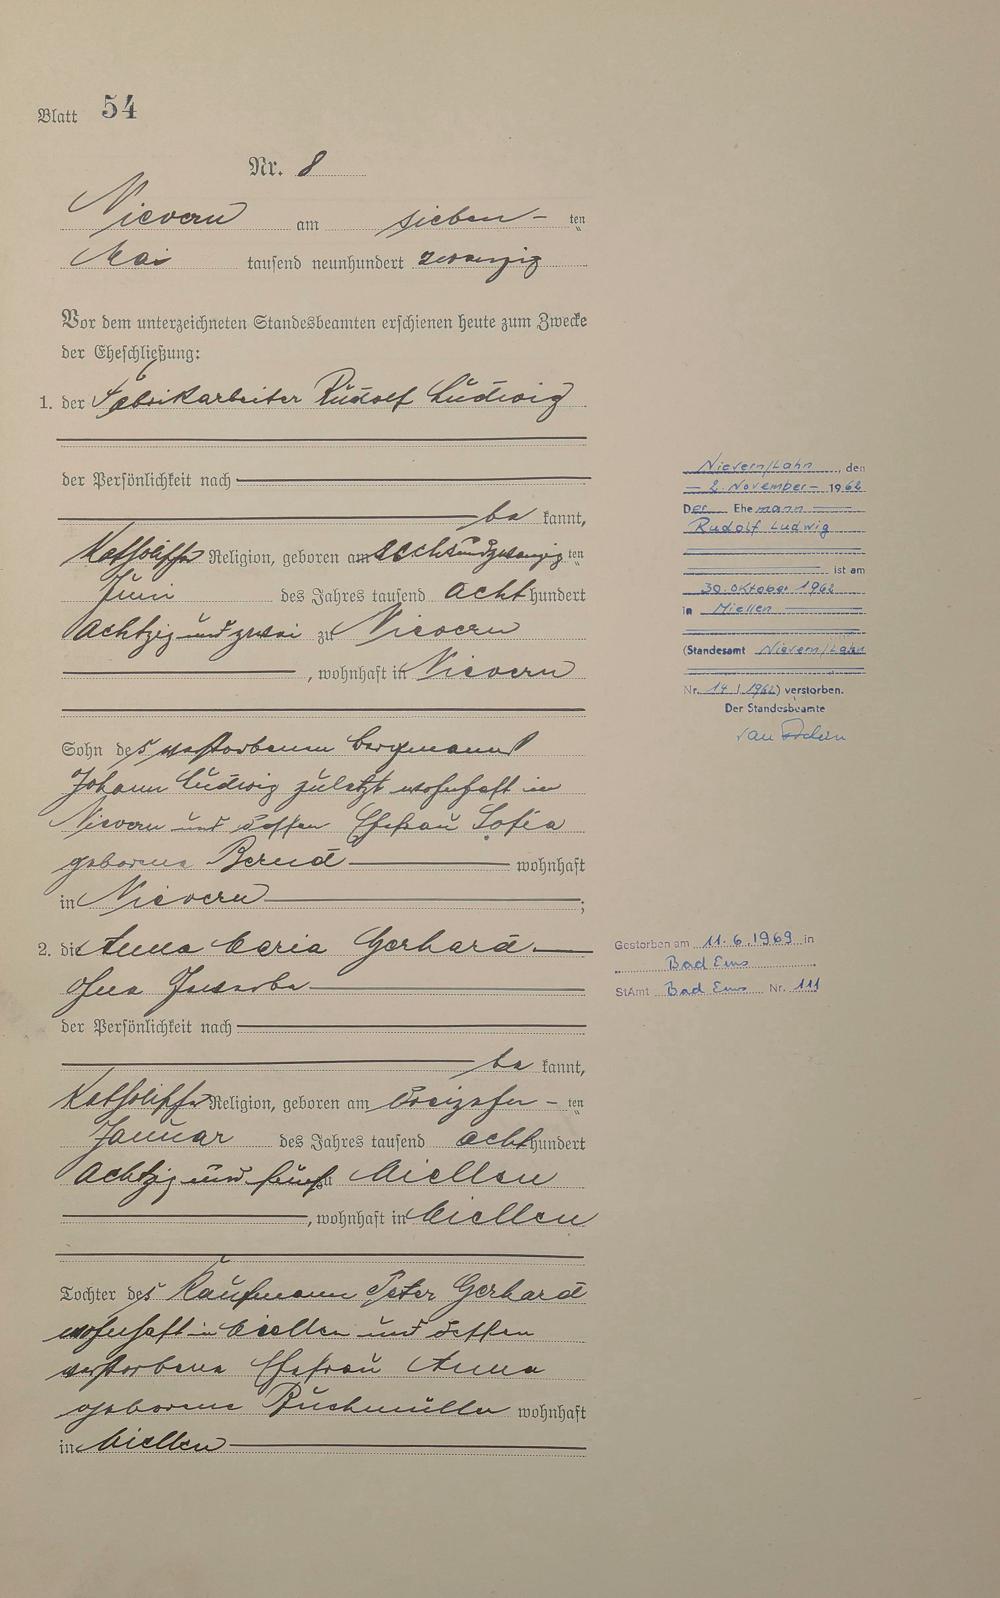 Blatt 54
Nr. 8
Nievern am sieben- ten
Mai tausend neunhundert zwanzig
Vor dem unterzeichneten Standesbeamten erschienen heute zum Zwecke
der Eheschließung:
1. der Fabrikarbeiter Rudolf Ludwig
der Persönlichkeit nach
be kannt,
katholischer Religion, geboren am sechsundzwanzig ten
Juni des Jahres tausend acht hundert
achtzig und zwei zu Nievern
, wohnhaft in Nievern
Sohn des verstorbenen Bergmanns
Johann Ludwig zuletzt wohnhaft in
Nievern und dessen Ehefrau Sofia
geborene Bernd wohnhaft
in Nievern ;
2. die Anna Maria Gerhard
ohne
der Persönlichkeit nach
be kannt,
katholischer Religion, geboren am dreizehn - ten
Januar des Jahres tausend acht hundert
achtzig und fünf zu Miellen
, wohnhaft in Miellen
Tochter des Kaufmann Peter Gerhard
wohnhaft in Miellen und dessen
verstorbene Ehefrau Anna
geborene Buchmüller wohnhaft
in Miellen
Nievern/Lahn, den
- 2. November - 1962
Der Ehemann
Rudolf Ludwig
ist am
30. Oktober 1962
in Miellen
(Standesamt Nievern/Lahn
Nr. 14 / 1962) verstorben.
Der Standesbeamte
Gestorben am 11.6.1969 in
Bad Ems
StAmt Bad Ems Nr. 111